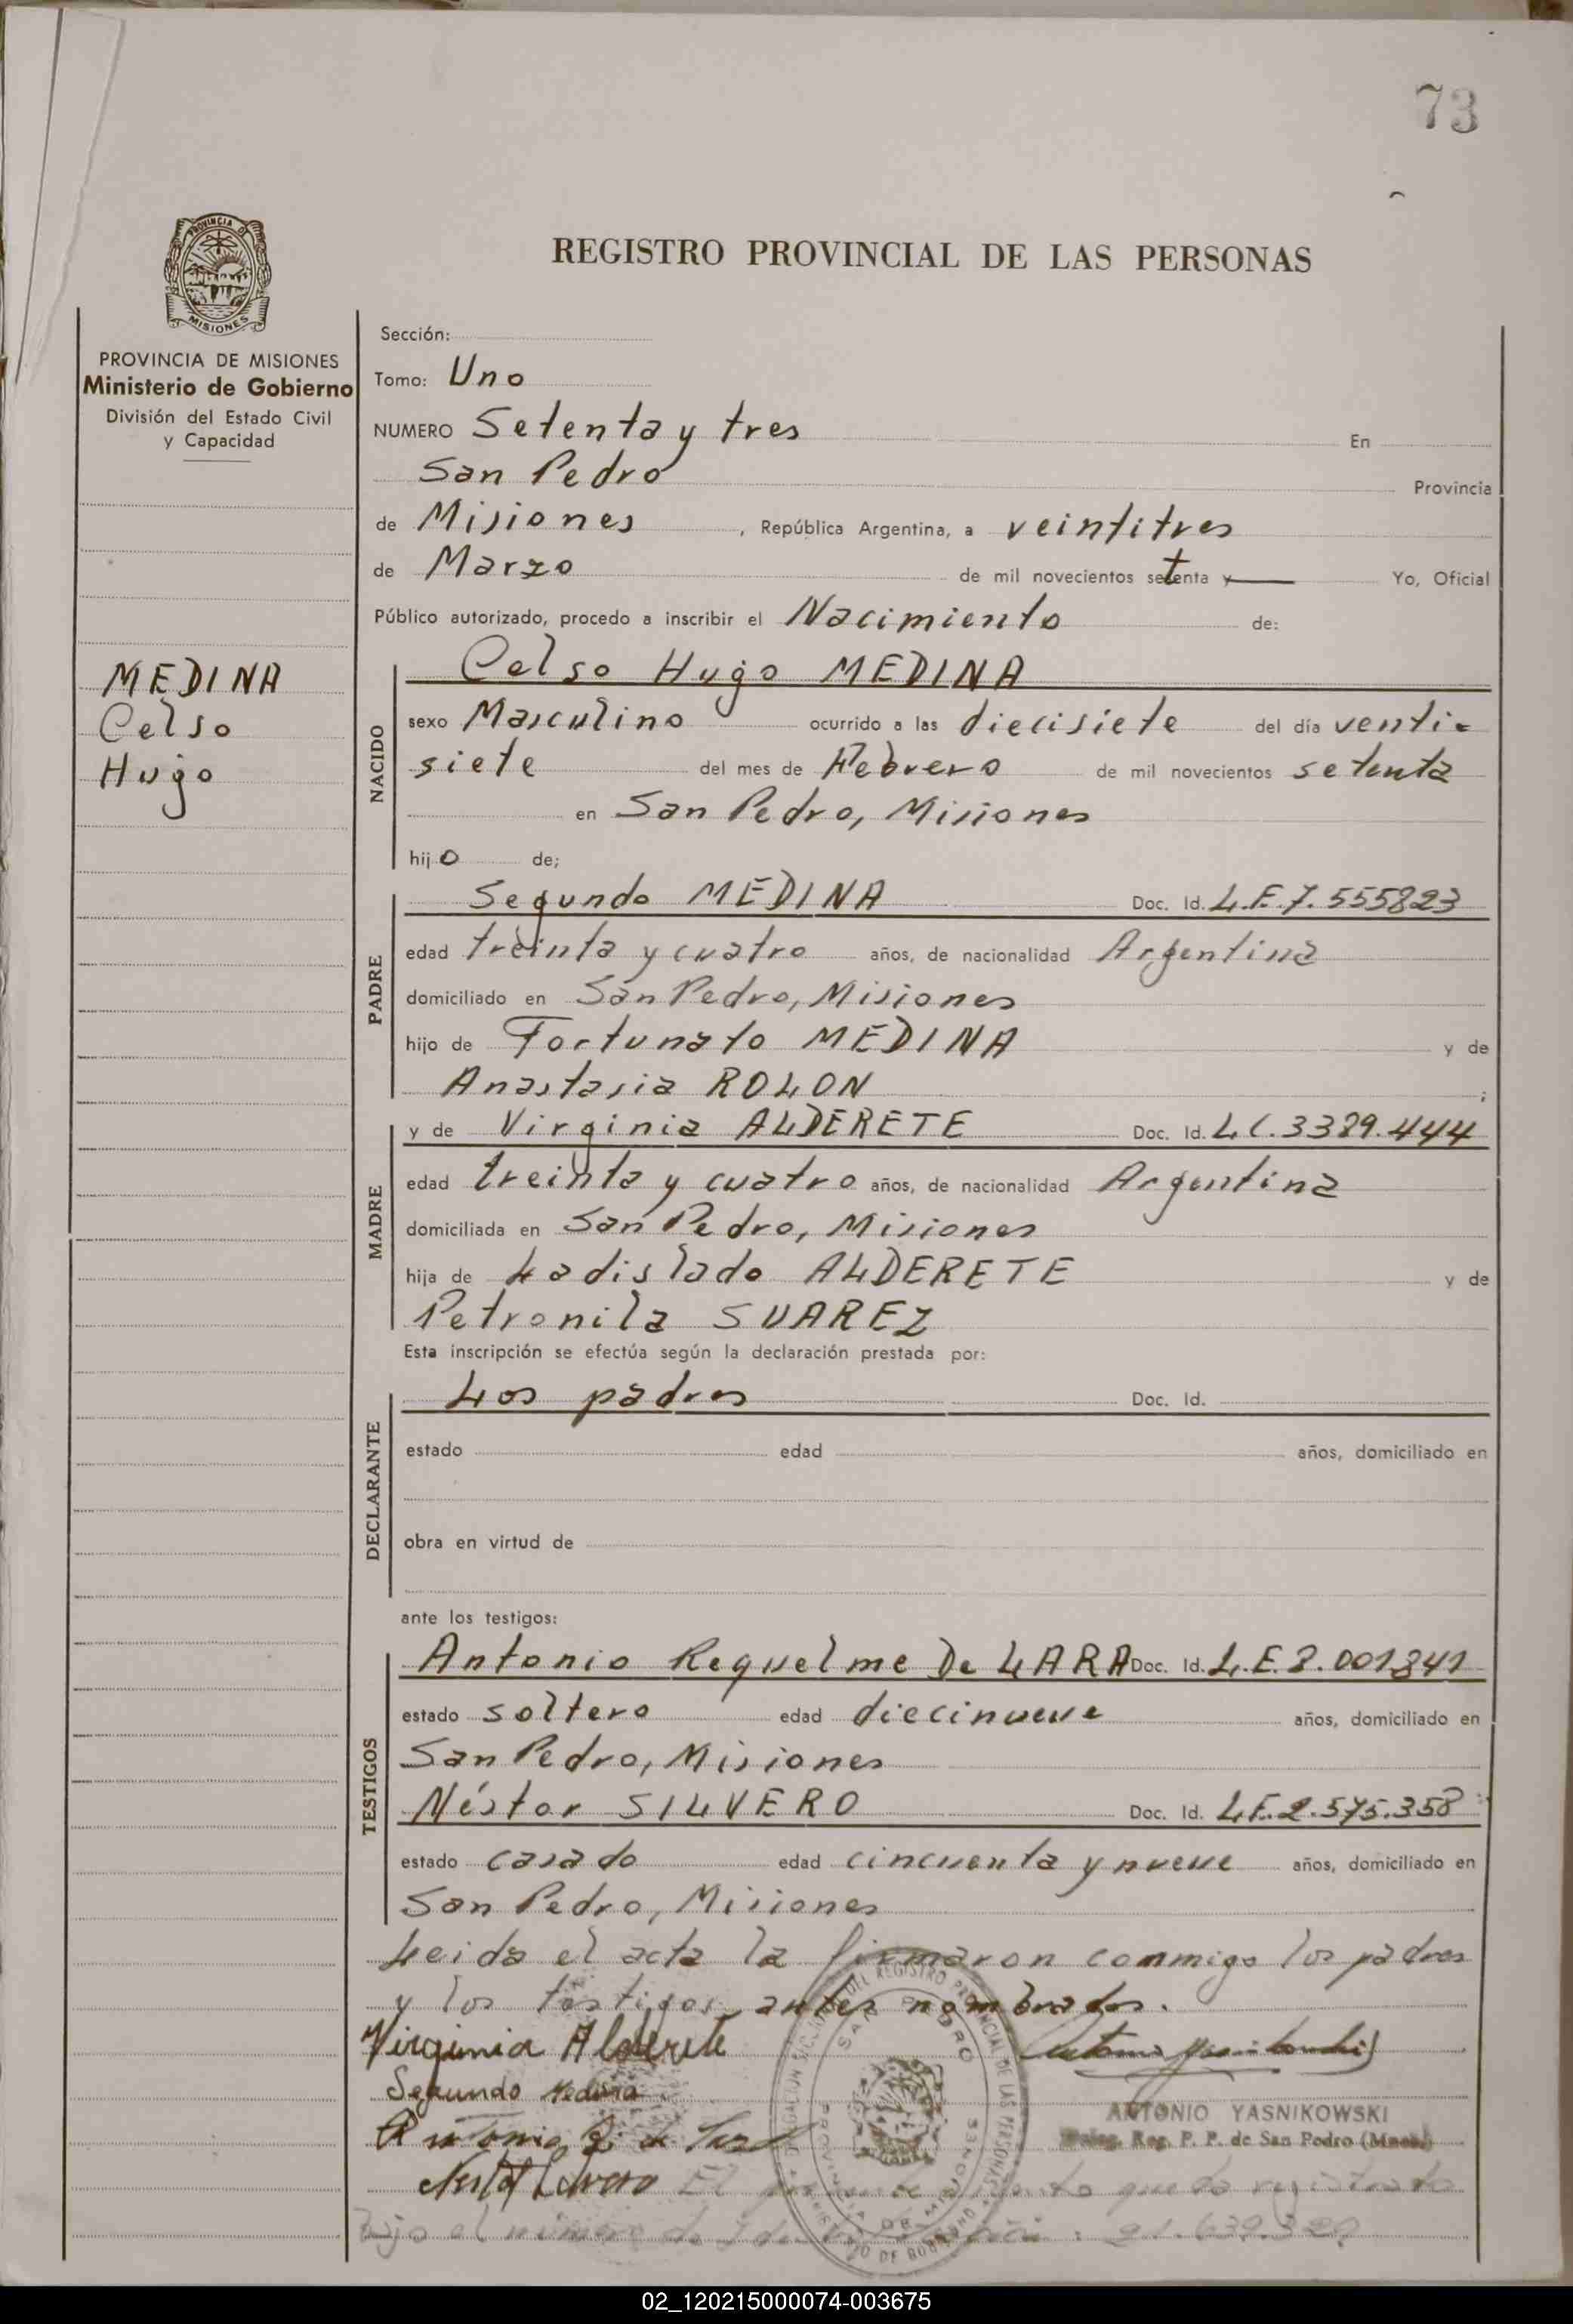 73
PROVINCIA DE
MISIONES
REGISTRO PROVINCIAL DE LAS PERSONAS
PROVINCIA DE MISIONES
Ministerio de Gobierno
División del Estado Civil
y Capacidad
MEDINA
Celso
Hugo
Sección:
Tomo: Uno
NUMERO Setenta y tres En
San Pedro Provincia
de Misiones, República Argentina, a veintitres
de Marzo de mil novecientos setenta y Yo, Oficial
Público autorizado, procedo a inscribir el Nacimiento de:
NACIDO
Celso Hugo MEDINA
sexo Masculino ocurrido a las diecisiete del día venti-
siete del mes de Febrero de mil novecientos setenta
en San Pedro, Misiones
hijo de;
PADRE
Segundo MEDINA Doc. Id. L.E. 7.555823
edad treinta y cuatro años, de nacionalidad Argentina
domiciliado en San Pedro, Misiones
hijo de Fortunato MEDINA y de
Anastasia ROLON;
MADRE
y de Virginia ALDERETE Doc. Id. L.C. 3389.444
edad treinta y cuatro años, de nacionalidad Argentina
domiciliada en San Pedro, Misiones
hija de Ladislado ALDERETE y de
Petronila SUAREZ
Esta inscripción se efectúa según la declaración prestada por:
DECLARANTE
Los padres Doc. Id.
estado edad años, domiciliado en
obra en virtud de
ante los testigos:
TESTIGOS
Antonio Requelme De LARA Doc. Id. L.E. 8.001841
estado soltero edad diecinueve años, domiciliado en
San Pedro, Misiones
Néstor SILVERO Doc. Id. L.E. 2.575.358
estado casado edad cincuenta y nueve años, domiciliado en
San Pedro, Misiones
Leida el acta la firmaron conmigo los padres
y los testigos antes nombrados.
Virginia Alderete
Segundo Medina
ANTONIO YASNIKOWSKI
Reg. P. P. de San Pedro (Mnes.)
El presente queda registrado
bajo el número de 21.639.320
SAN PEDRO
PROVINCIA DE MISIONES
02_120215000074-003675